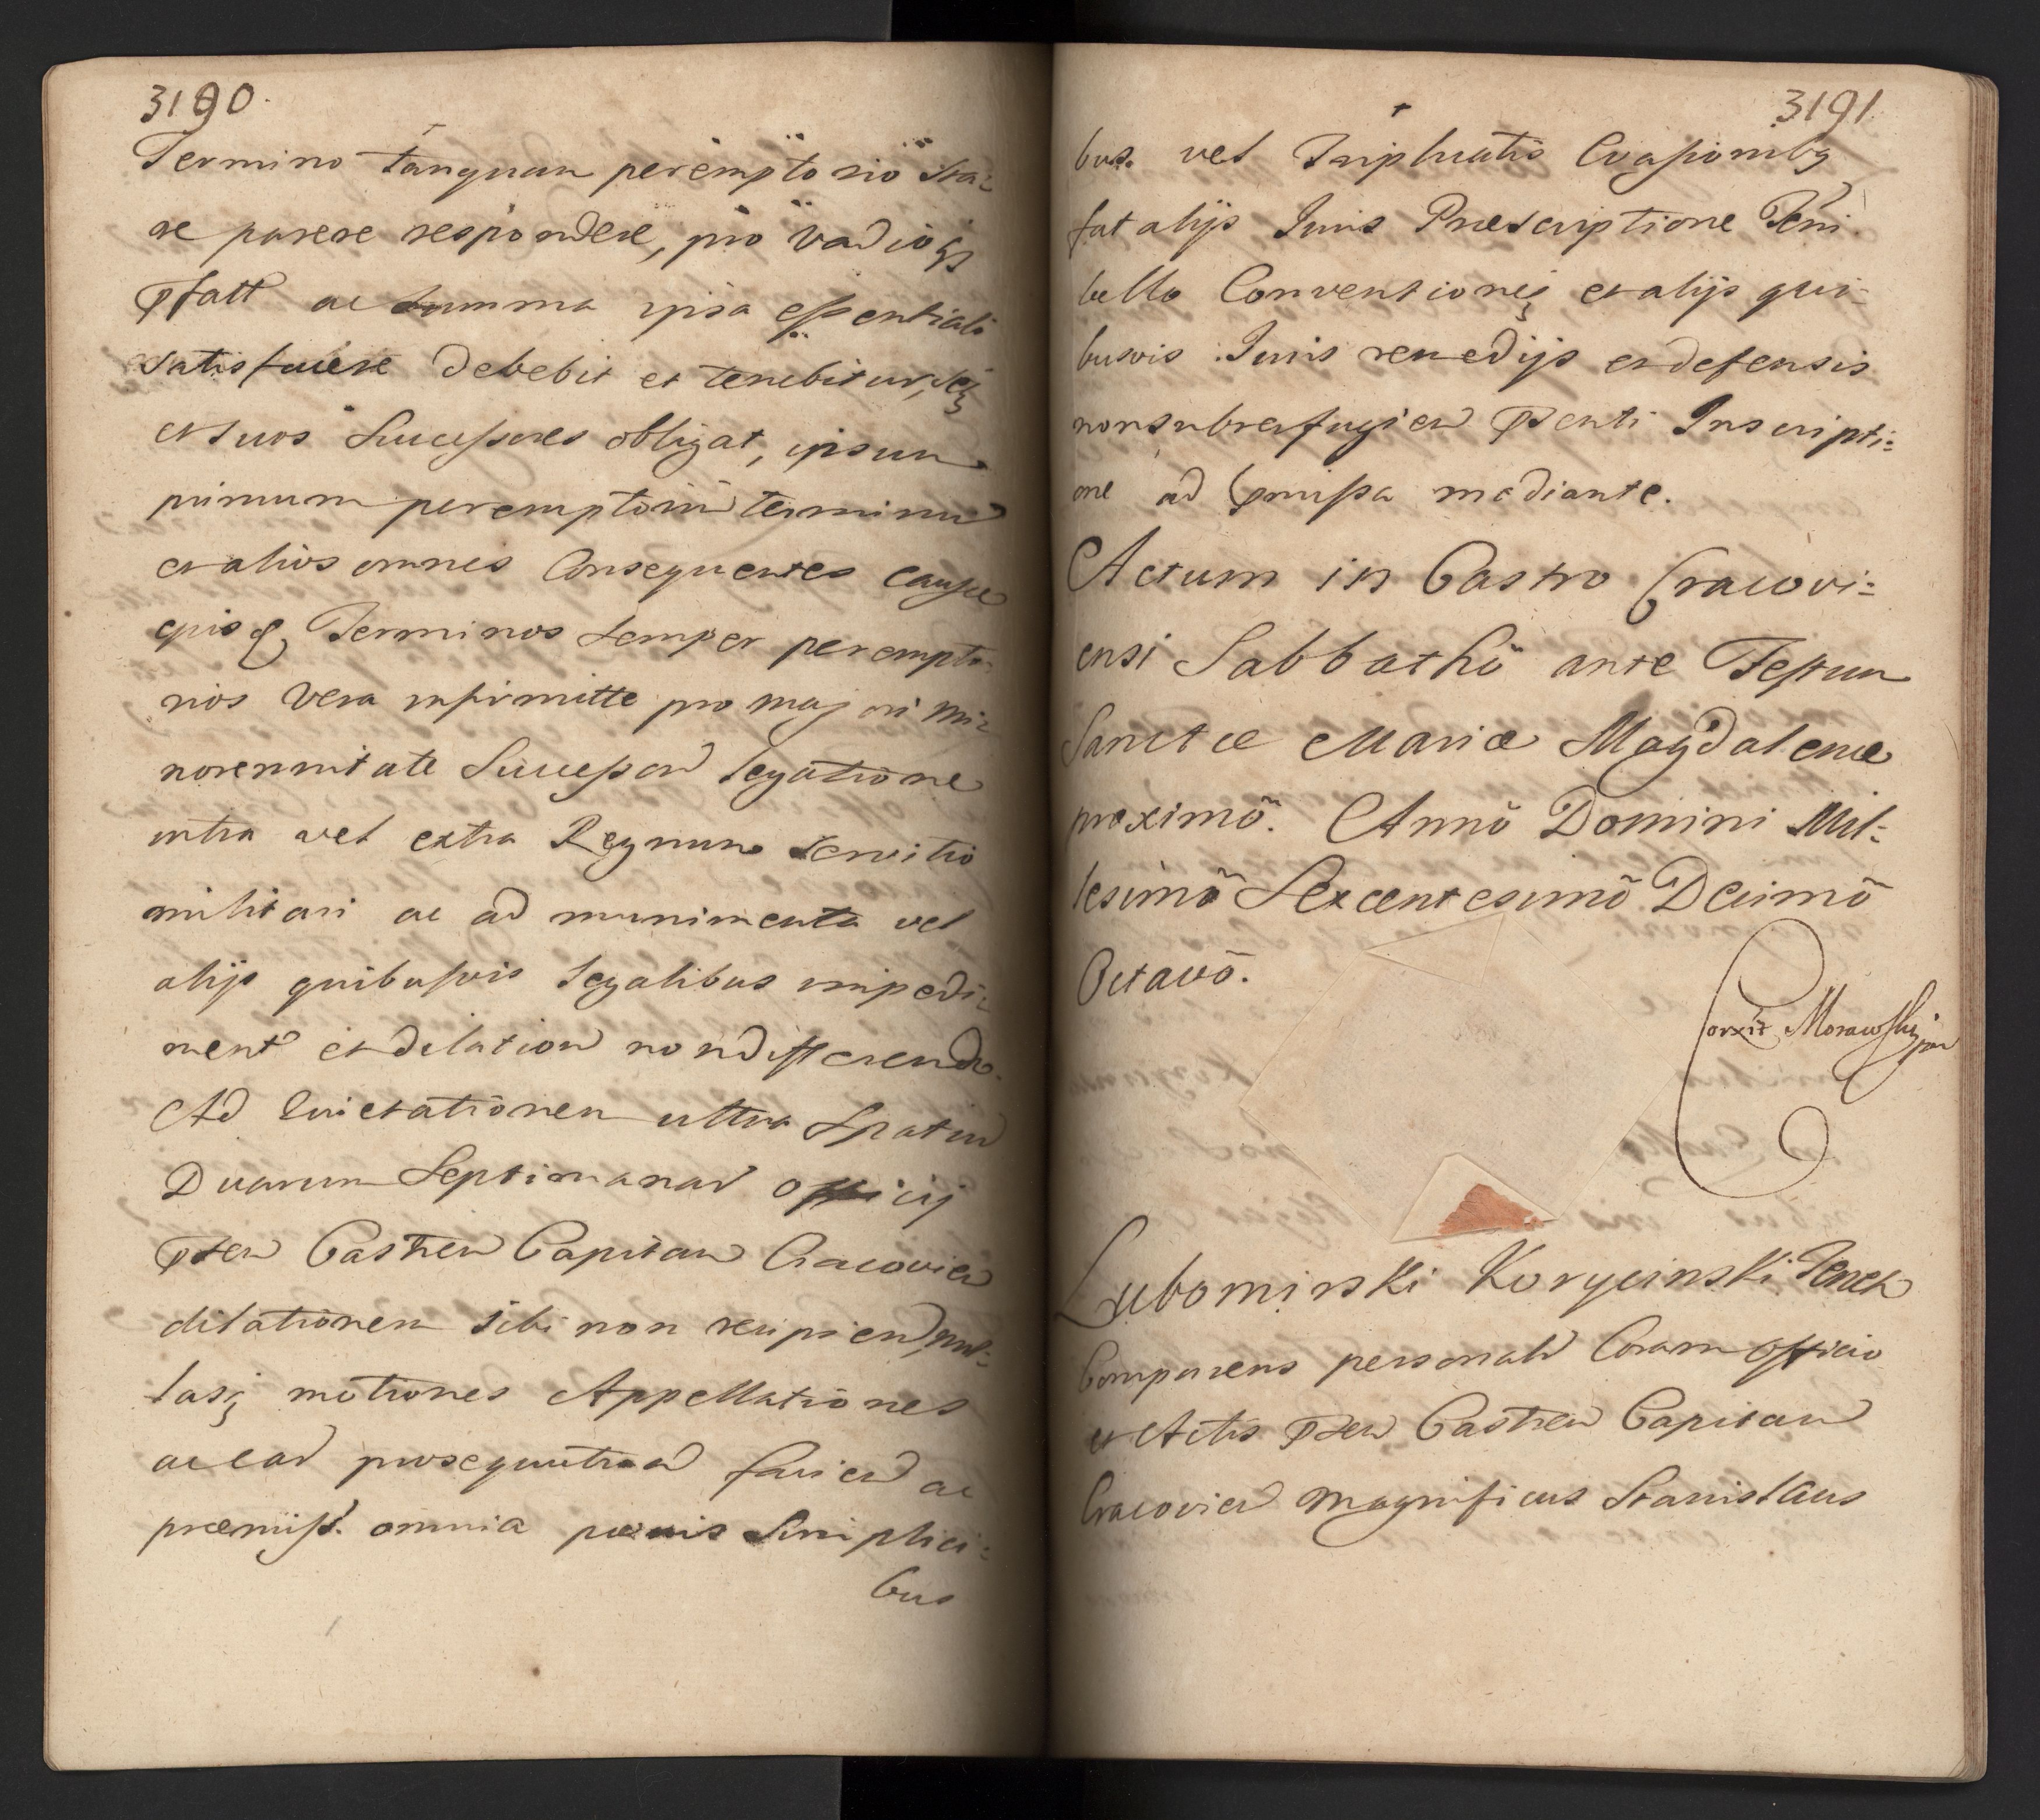 3190.
Termino tanquam peremptorio sta=
re parere respondere, pro vadiog
Pfatt ac summa ipsa essentiali
satisfacere debebit et tenebitur, seq
et suos Successores obligat, ipsum
primum peremptoriu terminu
et alios omnes Consequentes causae
episq Terminos semper perempto=
rios vera infirmitte pro majori mi=
norennitate Successoru legatione
intra vel extra Regnum servitio
militari ac ad munimenta vel
alijs quibusvis legalibus impedi=
ment et dilation non differendo.
Ad Quietationem ultra Spatiu
Duarum Septimanaru officij
Psen Castren Capitan Cracovien
dilationem sibi non recipien, nul=
lasq motiones Appellationes
ac ear prosequution facien ac
praemiss. omnia poenis Simplici=
bus
3191.
bus. vel Triplicatis Evasionibq
fatalijs Juris Praescriptione Teni
bello Conventioneq et alijs qui=
busvis Juris remedijs et defensis
non subterfugien Psenti Inscripti=
one ad Pmissa mediante.
Actum in Castro Cracovi=
ensi Sabbathō ante Festum
Sanctae Mariae Magdalenae
proximō. Annō Domini Mil=
lesimō Sexcentesimō Decimō
Octavō.
Morawski
Lubomirski Korycinski Tenet
Comparens personalr Coram officio
et Actis Psen Castren Capitan
Cracovien Magnificus Stanislaus